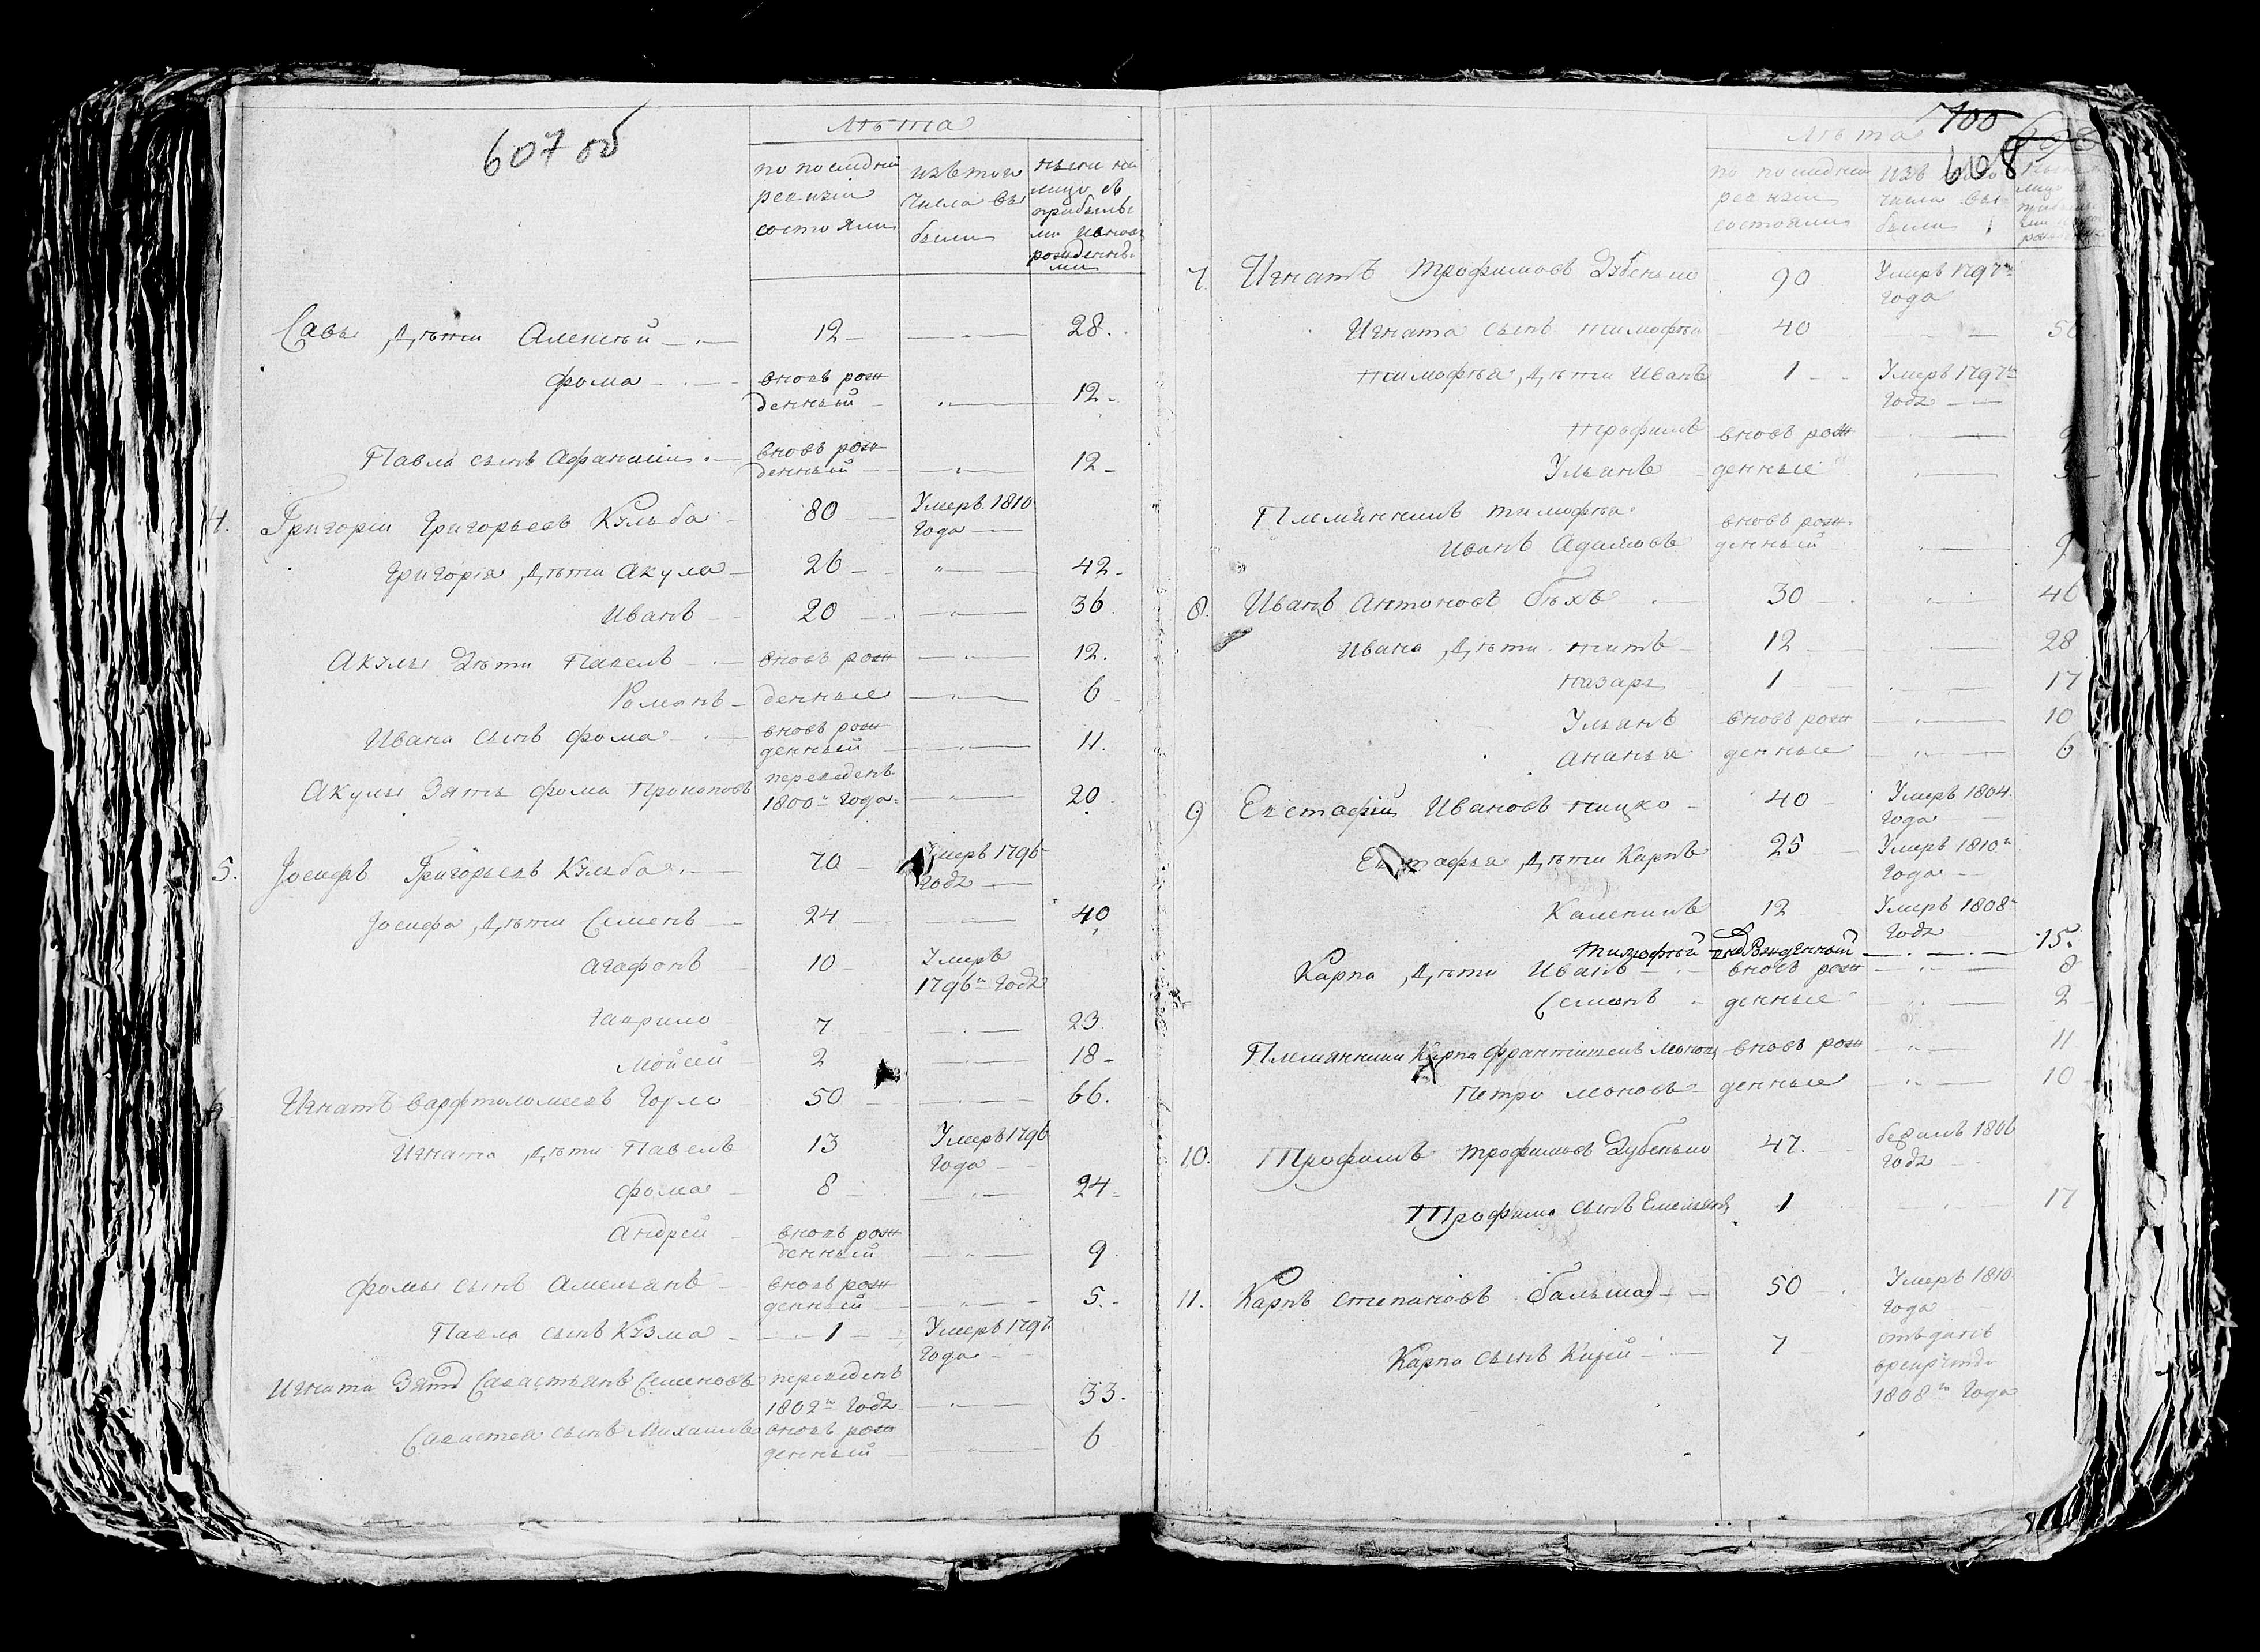 607 об
Лѣта
по последней
ревизіи
состояли
изъ того
числа вы
были
ныне на
лицо съ
прибылы
ми и вновь
рожденны
ми
Савы дѣти Алексѣй 12 28.
Фома вновь рож
денный 12
Павла сынъ Афанасий вновь рож
денный 12
4. Григорій Григорьевъ Кульба 80 Умеръ 1810
года
Григорія дѣти Акула 26 42
Иванъ 20 36.
Акулы дѣти Павелъ вновь рож 12.
Романъ денные 6
Ивана сынъ Фома вновь рож
денный 11.
Акулы Зять Фома Прокоповъ переведенъ
1800го года 20.
5. Іосифъ Григорьевъ Кульба 70 Умеръ 1796
годъ
Іосифа дѣти Семенъ 24 40
Агафонъ 10 Умеръ
1796го годъ
Гаврило 7 23.
Мойсей 2 18
6 Игнатъ Варфтоломеевъ Горло 50 66.
Игната дѣти Павелъ 13 Умеръ 1796
года
Фома 8 24
Андрей вновь рож
денный 9
Фомы сынъ Амельянъ вновь рож
денный 5.
Павла сынъ Кузма 1 Умеръ 1797
года
Игната Зять Савастьянъ Семеновъ переведенъ
1802го годъ 33.
Савастея сынъ Михаилъ вновь рож
денный 6
700
698
608
Лѣта
по последней
ревизіи
состояли
изъ того
числа вы
были
7. Игнатъ Трофимовъ Дубенько 90 Умеръ 1797го
года
Игната сынъ Тимофей 40 56
Тимофея дѣти Иванъ 1 Умеръ 1797го
годъ
Трофимъ вновь рож 9
Ульянъ денные
Племянникъ Тимофея
Иванъ Адамовъ вновь рож
денный 9
8. Иванъ Антоновъ Бѣхъ 30 46
Ивана дѣти Титъ 12 28
Назаръ 1 17
Ульянъ вновь рож 10
Ананья денные 6
9 Евстафій Ивановъ Тицко 40 Умеръ 1804
года
Евстафья дѣти Карпъ 25 Умеръ 1810го
года
Каленикъ 12 Умеръ 1808го
годъ
Тимофей рожденный 15.
Карпа дѣти Иванъ вновь рож 8
Семенъ денные 2
Племянники Карпа вновь рож 11
Петро денные 10
10. Трофимъ Трофимовъ Дубенько 47. бежалъ 1806
годъ
Трофима сынъ Емельянъ 1 17
11. Карпъ Степановъ 50 Умеръ 1810
года
Карпа сынъ 7 отъданъ
1808го года